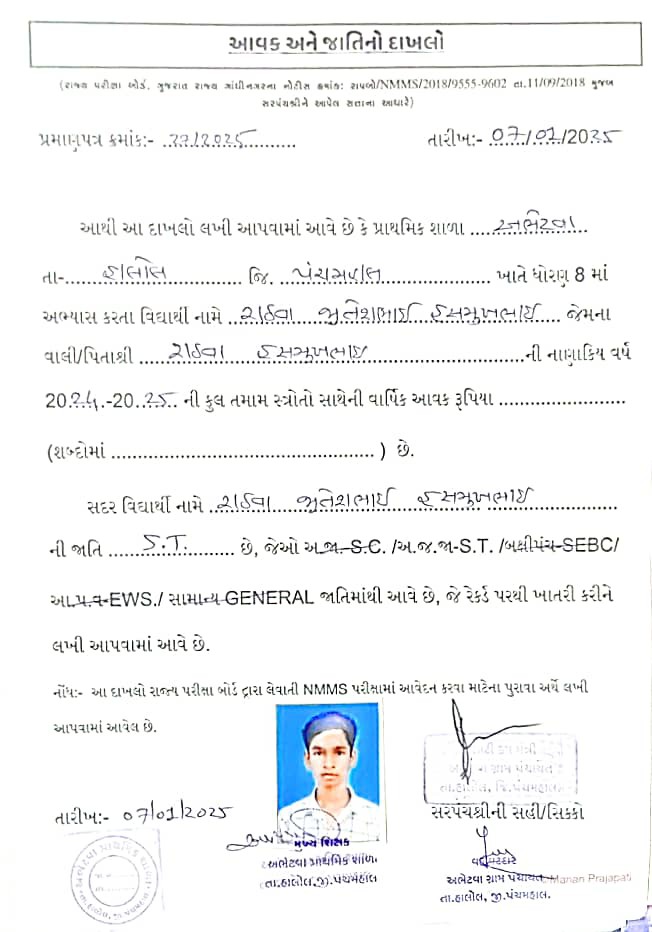 આવક અને જાતિનો દાખલો
(રાજ્ય પરીક્ષા બોર્ડ, ગુજરાત રાજ્ય ગાંધીનગરના નોટીસ ક્રમાંક: રાપબો/NMMS/2018/9555-9602 તા.11/09/2018 મુજબ
સરપંચશ્રીને આપેલ સત્તાના આધારે)
પ્રમાણપત્ર ક્રમાંક:- /2025 તારીખ:- 07/01/2025
આથી આ દાખલો લખી આપવામાં આવે છે કે પ્રાથમિક શાળા અભેટવા
તા-હાલોલ જિ. પંચમહાલ ખાતે ધોરણ 8 માં
અભ્યાસ કરતા વિદ્યાર્થી નામે રાઠવા જીતેશભાઈ હસમુખભાઈ જેમના
વાલી/પિતાશ્રી રાઠવા હસમુખભાઈ ની નાણાકિય વર્ષ
2024-2025 ની કુલ તમામ સ્ત્રોતો સાથેની વાર્ષિક આવક રૂપિયા ........................
(શબ્દોમાં ................................................ ) છે.
સદર વિદ્યાર્થી નામે રાઠવા જીતેશભાઈ હસમુખભાઈ
ની જાતિ S.T. છે, જેઓ અ.જા.-S.C. /અ.જ.જા-S.T. /બક્ષીપંચ-SEBC/
આ.પ્ર.વ-EWS./ સામાન્ય-GENERAL જાતિમાંથી આવે છે, જે રેકર્ડ પરથી ખાતરી કરીને
લખી આપવામાં આવે છે.
નોંધ:- આ દાખલો રાજ્ય પરીક્ષા બોર્ડ દ્વારા લેવાતી NMMS પરીક્ષામાં આવેદન કરવા માટેના પુરાવા અર્થે લખી
આપવામાં આવેલ છે.
તા.હાલોલ, જિ.પંચમહાલ
તારીખ:- 07/01/2025
સરપંચશ્રીની સહી/સિક્કો
મુખ્ય શિક્ષક
અભેટવા પ્રાથમિક શાળા
તા.હાલોલ,જી.પંચમહાલ
વહીવટદાર
અભેટવા ગ્રામ પંચાયત
Manan Prajapati
તા.હાલોલ, જી.પંચમહાલ.
અભેટવા પ્રાથમિક શાળા
તા.હાલોલ, જી.પંચમહાલ